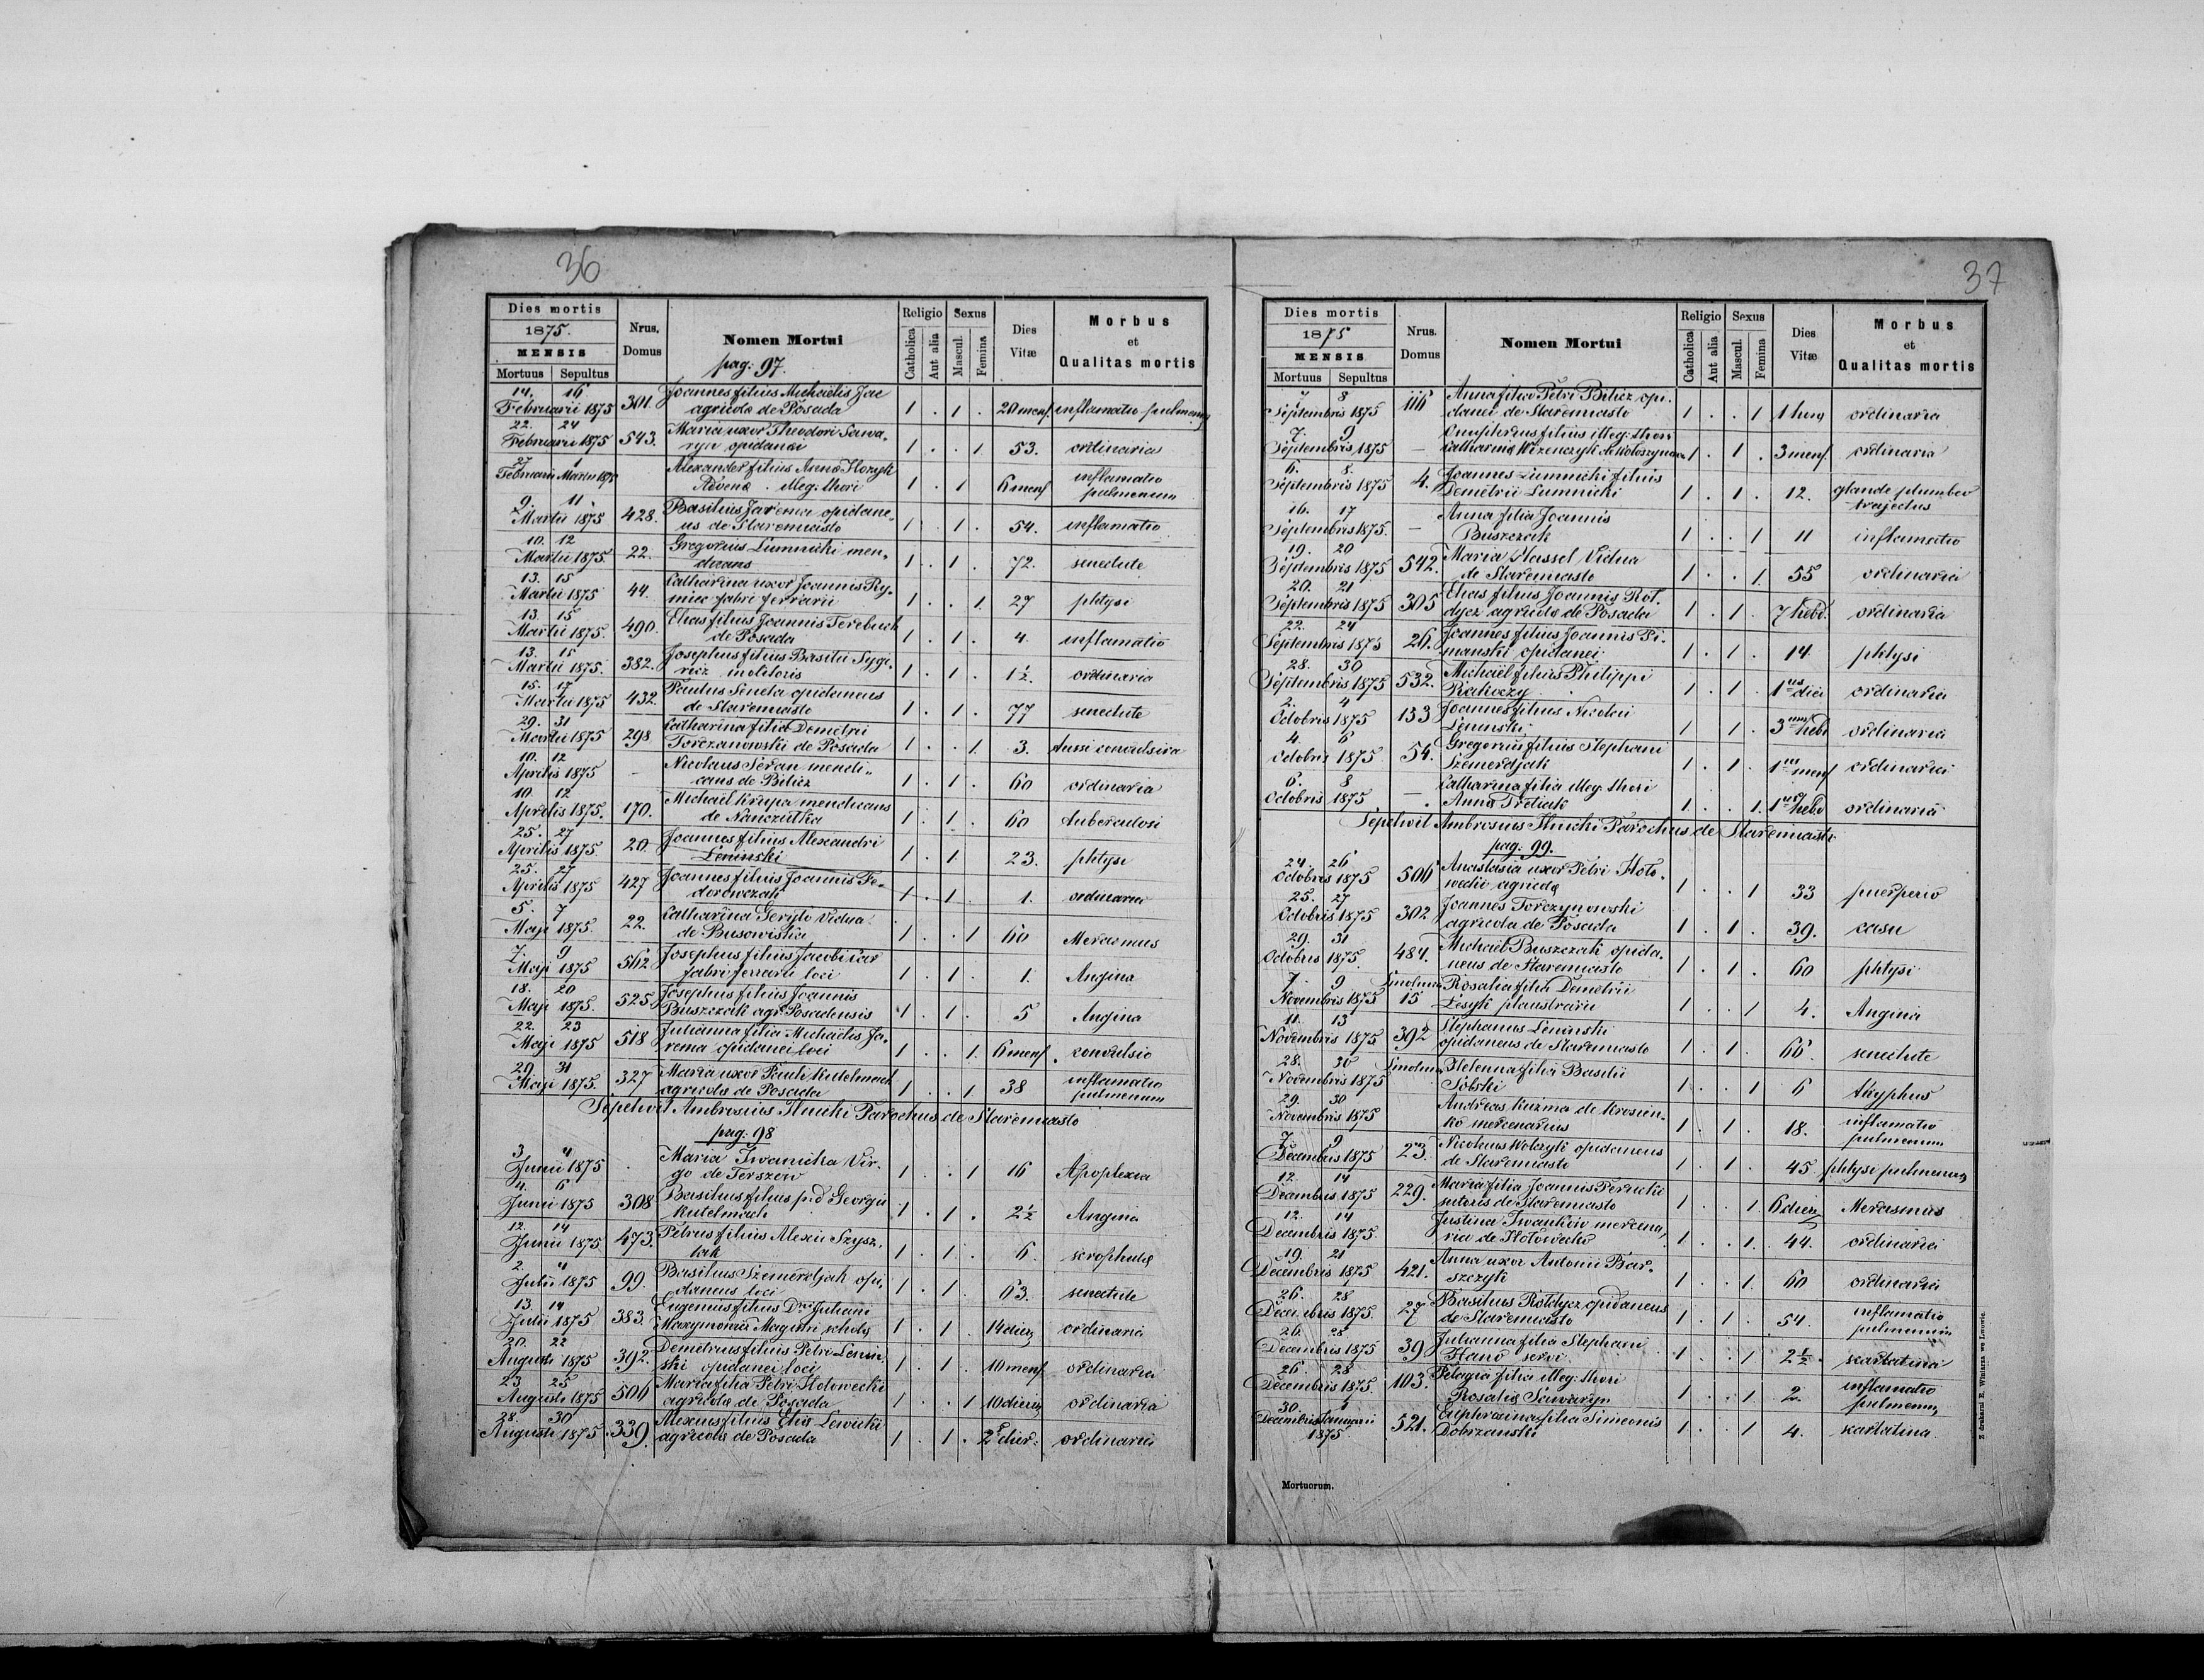 36
Dies mortis Nrus. Domus Nomen Mortui Religio Sexus Dies Vitæ Morbus et Qualitas mortis
1875.
MENSIS
Mortuus Sepultus Catholica Aut alia Mascul. Femina
pag: 97.
14. 16 Februarii 1875 301. Joannes filius Michaelis Jac
agricola de Posada 1 . 1 . 20 mens. inflamatio pulmonum
22. 24 Februarii 1875 543. Maria uxor Theodori Sawa-
ryn opidanei 1 . . 1. 53. ordinaria
27 1 Februarii Martii 1875 Alexander filius Anna Hozyk
Advena . illeg: thori 1 . 1 6 mens inflamatio pulmonum
9. 11. Martii 1875 428. Basilius Jarema opidane-
us de Staremiasto 1 . 1 . 54. inflamatio
10. 12 Martii 1875. 22. Gregorius Lumnicki men-
dicans 1 . 1 . 72. senectute
13. 15 Martii 1875 44. Catharina uxor Joannis Ry-
niec fabri ferrarii 1 . . 1. 27 phtysi
13. 15 Martii 1875. 490. Elias filius Joannis Terebuch
de Posada 1 . 1 . 4. inflamatio
13. 15 Martii 1875. 382. Josephus filius Basilii Sygi-
ricz molitoris 1 . 1 . 1½. ordinaria
15. 17 Martii 1875 432. Paulus Seneta opidaneus
de Staremiasto 1 . 1 . 77 senectute
29. 31 Martii 1875 298 Catharina filia Demetrii
Torczanowski de Posada 1 . . 1. 3. tussi convulsiva
10. 12 Aprilis 1875 - Nicolaus Seran mendi-
cans de Bilicz 1 . 1 . 60 ordinaria
10. 12 Aprilis 1875. 170. Michael Krupa mendicans
de Nanczulka 1 . 1 . 60 tuberculosi
25. 27 Aprilis 1875. 20. Joannes filius Alexandri
Leninski 1 . 1 23. phtysi
25. 27 Aprilis 1875 427 Joannes filius Joannis Fe-
dorowczak 1 . 1 . 1. ordinaria
5. 7 Maji 1875. 22. Catharina Geryło vidua
de Busowiska 1 . . 1 60 Merasmus
7. 9 Maji 1875 562 Josephus filius Jacobi Car
fabri ferrarii loci 1 . 1 . 1. Angina
18. 20 Maji 1875. 525 Josephus filius Joannis
Buszczak agr. Posadensis 1 . 1 . 5 Angina
22. 23 Maji 1875 518 Julianna filia Michaelis Ja-
rema opidanei loci 1 . . 1. 6 mens. convulsio
29. 31 Maji 1875. 327 Maria uxor Pauli Kutelmach
agricola de Posada 1 . . 1 38 inflamatio pulmonum
Sepelivit Ambrosius Ilnicki Parochus de Staremiasto
pag: 98
3. 4 Junii 1875 Maria Iwanicka Vir-
go de Terszow 1 . . 1 16 Apoplexia
4. 6 Junii 1875 308 Basilius filius p.d. Georgii
Kutelmach 1 . 1 . 2½ Angina
12. 14 Junii 1875 473. Petrus filius Alexii Szysz-
lak 1 . 1 . 6. scrophula
2. 4 Julii 1875 99. Basilius Szemerdjak opi-
daneus loci 1 . 1 . 63. senectute
13. 14 Julii 1875 383. Eugenius filius Dni Juliani
Maxymowicz Magistri schola 1 . 1 . 14 dieru ordinaria
20. 22 Augusti 1875 392. Demetrius filius Petri Lenin-
ski opidanei loci 1 . 1 . 10 mens. ordinaria
23 25 Augusti 1875 506 Maria filia Petri Hołowecki
agricola de Posada 1 . . 1 10 dieru ordinaria
28. 30 Augusti 1875 339. Alexius filius Elia Lewicki
agricola de Posada 1 . 1 . 2 dier. ordinaria
37
Dies mortis Nrus. Domus Nomen Mortui Religio Sexus Dies Vitæ Morbus et Qualitas mortis
1875
MENSIS
Mortuus Sepultus Catholica Aut alia Mascul. Femina
7 8 Septembris 1875 116 Anna filia Petri Bilicz opi-
danei de Staremiasto 1 . . 1 1 hora ordinaria
7. 9 Septembris 1875 - Onuphrius filius illeg: thori
Catharina Wizenczyk de Wołoszynowa 1 . 1 . 3 mens. ordinaria
6. 8. Septembris 1875 4. Joannes Lumnicki filius
Demetrii Lumnicki 1 . 1 . 12. glande plumbeo trajectus
16. 17 Septembris 1875. - Anna filia Joannis
Buszczak 1 . . 1 11 inflamatio
19. 20 Septembris 1875 542. Maria Hassel Vidua
de Staremiasto 1 . . 1. 55 ordinaria
20. 21 Septembris 1875 305 Elias filius Joannis Roł-
dycz agricola de Posada 1 . 1 . 7 hebd. ordinaria
22. 24 Septembris 1875 26. Joannes filius Joannis Pi-
manski opidanei 1 . 1 . 14. phtysi
28. 30 Septembris 1875 532. Michael filius Philippi
Rakoczy 1 . 1 . 1us diei ordinaria
2. 4 Octobris 1875 133 Joannes filius Nicolai
Leninski 1 1 . 3um hebd ordinaria
4. 6 Octobris 1875 54. Gregorius filius Stephani
Szemerdjak 1 . 1 . 1us mens ordinaria
6. 8 Octobris 1875 - Catharina filia illeg. thori
Anna Tretiak 1 . . 1. 1us hebd ordinaria
Sepelivit Ambrosius Ilnicki Parochus de Staremiasto
pag: 99.
24. 26 Octobris 1875 506 Anastasia uxor Petri Hoło-
wecki agricola 1 . 1 33 puerperio
25. 27 Octobris 1875 302 Joannes Torczynowski
agricola de Posada 1 . 1 . 39. casu
29. 31 Octobris 1875 484. Michael Buszczak opida-
neus de Staremiasto 1 . 1 . 60 phtysi
7. 9 Novembris 1875 15 Rosalia filia Demetrii
Lesyk plaustrarii 1 . . 1 4. Angina
11. 13 Novembris 1875 392 Stephanus Leninski
opidaneus de Staremiasto 1 . 1 . 66. senectute
28. 30 Novembris 1875 Helenna filia Basilii
Solski 1 . . 1 6 thyphus
29. 30 Novembris 1875 Andreas Kuzma de Krosien-
ko mercenarius 1 . 1 . 18. inflamatio pulmonum
7 9 Decembris 1875 23. Nicolaus Wołczyk opidaneus
de Staremiasto 1 . 1 . 45 phtysi pulmonum
12. 14 Decembris 1875 229. Maria filia Joannis Pernicki
sutoris de Staremiasto 1 . . 1. 6 dieru Merasmus
12. 14 Decembris 1875. Justina Iwankow mercena-
ria de Hołowecko 1 . . 1. 44. ordinaria
19. 21 Decembris 1875 421. Anna uxor Antonii Bar-
szczyk 1 . . 1. 60 ordinaria
26. 28 Decembris 1875. 27 Basilius Rołdycz opidaneus
de Staremiasto 1 . 1 . 54. inflamatio pulmonum
26. 28 Decembris 1875 39 Julianna filia Stephani
Hano servi 1 . . 1 2½. skarlatina
26. 28 Decembris 1875. 103. Pelagia filia illeg: thori
Rosalia Sawaryn 1 . . 1. 2. inflamatio pulmonum
30. 1 Decembris Januarii 1875 521. Euphrasina filia Simeonis
Dobrzanski 1 . . 1 4. skarlatina
Mortuorum.
Z drukarni E. Winiarza we Lwowie.